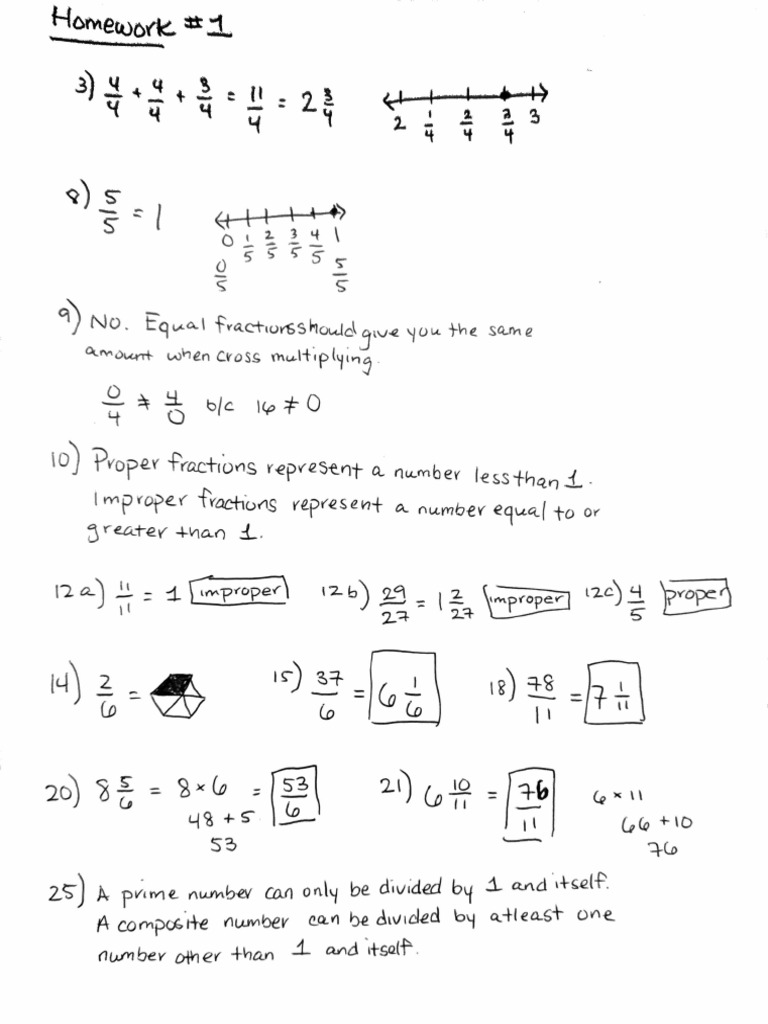 Homework #1
3) 4/4 + 4/4 + 3/4 = 11/4 = 2 3/4
2 1/4 2/4 3/4 3
8) 5/5 = 1
0 1/5 2/5 3/5 4/5 1
0/5 5/5
9) No. Equal fractions should give you the same
amount when cross multiplying.
0/4 ≠ 4/0 b/c 16 ≠ 0
10) Proper fractions represent a number less than 1.
Improper fractions represent a number equal to or
greater than 1.
12a) 11/11 = 1 improper 12b) 29/27 = 1 2/27 improper 12c) 4/5 proper
14) 2/6 = 15) 37/6 = 6 1/6 18) 78/11 = 7 1/11
20) 8 5/6 = 8 × 6 = 53/6 21) 6 10/11 = 76/11 6 × 11
48 + 5 66 + 10
53 76
25) A prime number can only be divided by 1 and itself.
A composite number can be divided by atleast one
number other than 1 and itself.